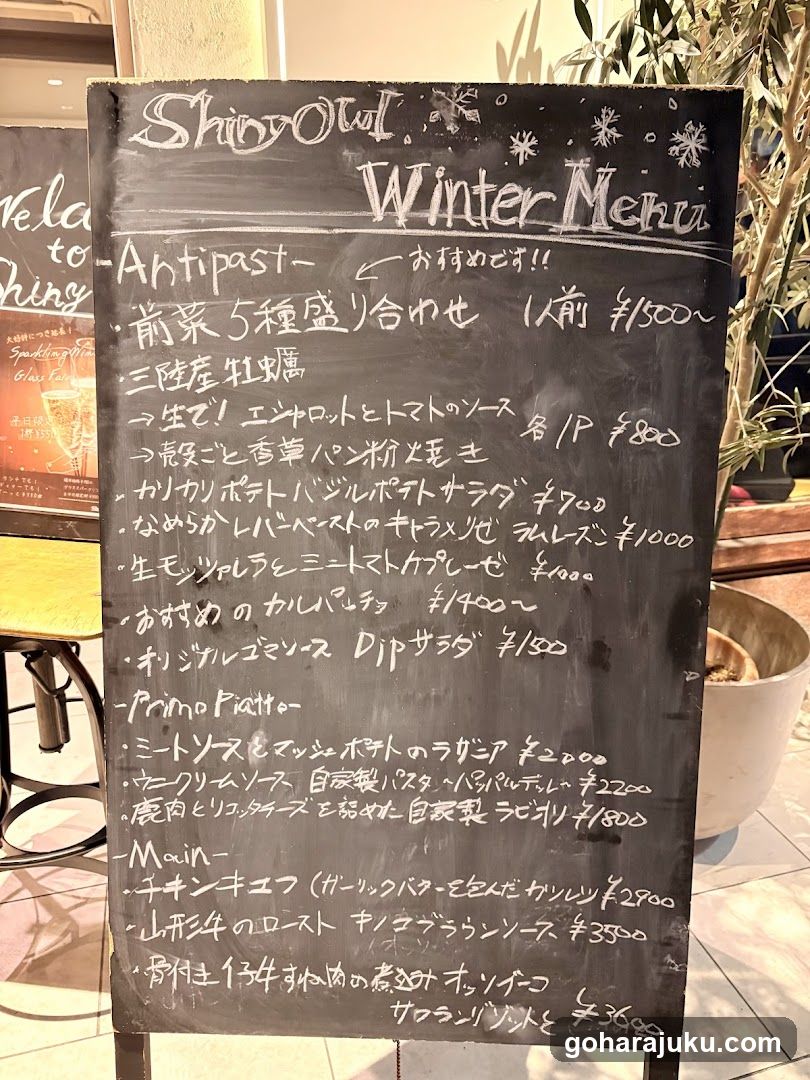 Shiny Owl
Winter Menu
Antipast-
おすすめです!!
・前菜5種盛り合わせ 1人前 ¥1500~
・三陸産牡蠣
→生で! エシャロットとトマトのソース
各1P ¥800
→殻ごと香草パン粉焼き
・カリカリポテト バジルポテトサラダ ¥700
・なめらかレバーペーストのキャラメリゼ ラムレーズン ¥1000
・生モッツァレラとミニトマトカプレーゼ ¥1000
・おすすめのカルパッチョ ¥1400~
・オリジナルゴマソース Dipサラダ ¥1500
-Primo Piatto-
・ミートソースとマッシュポテトのラザニア ¥2000
・ウニクリームソース 自家製パスタ ~パッパルデッレ~ ¥2200
・鹿肉とリコッタチーズを詰めた自家製ラビオリ ¥1800
-Main-
・チキンキエフ (ガーリックバターを包んだカツレツ ¥2900
・山形牛のロースト キノコブラウンソース ¥3500
・骨付き仔牛すね肉の煮込み オッソブーコ
サフランリゾットと ¥3600
Welco
to
Shiny
Sparkling Win
Glass Fair
goharajuku.com